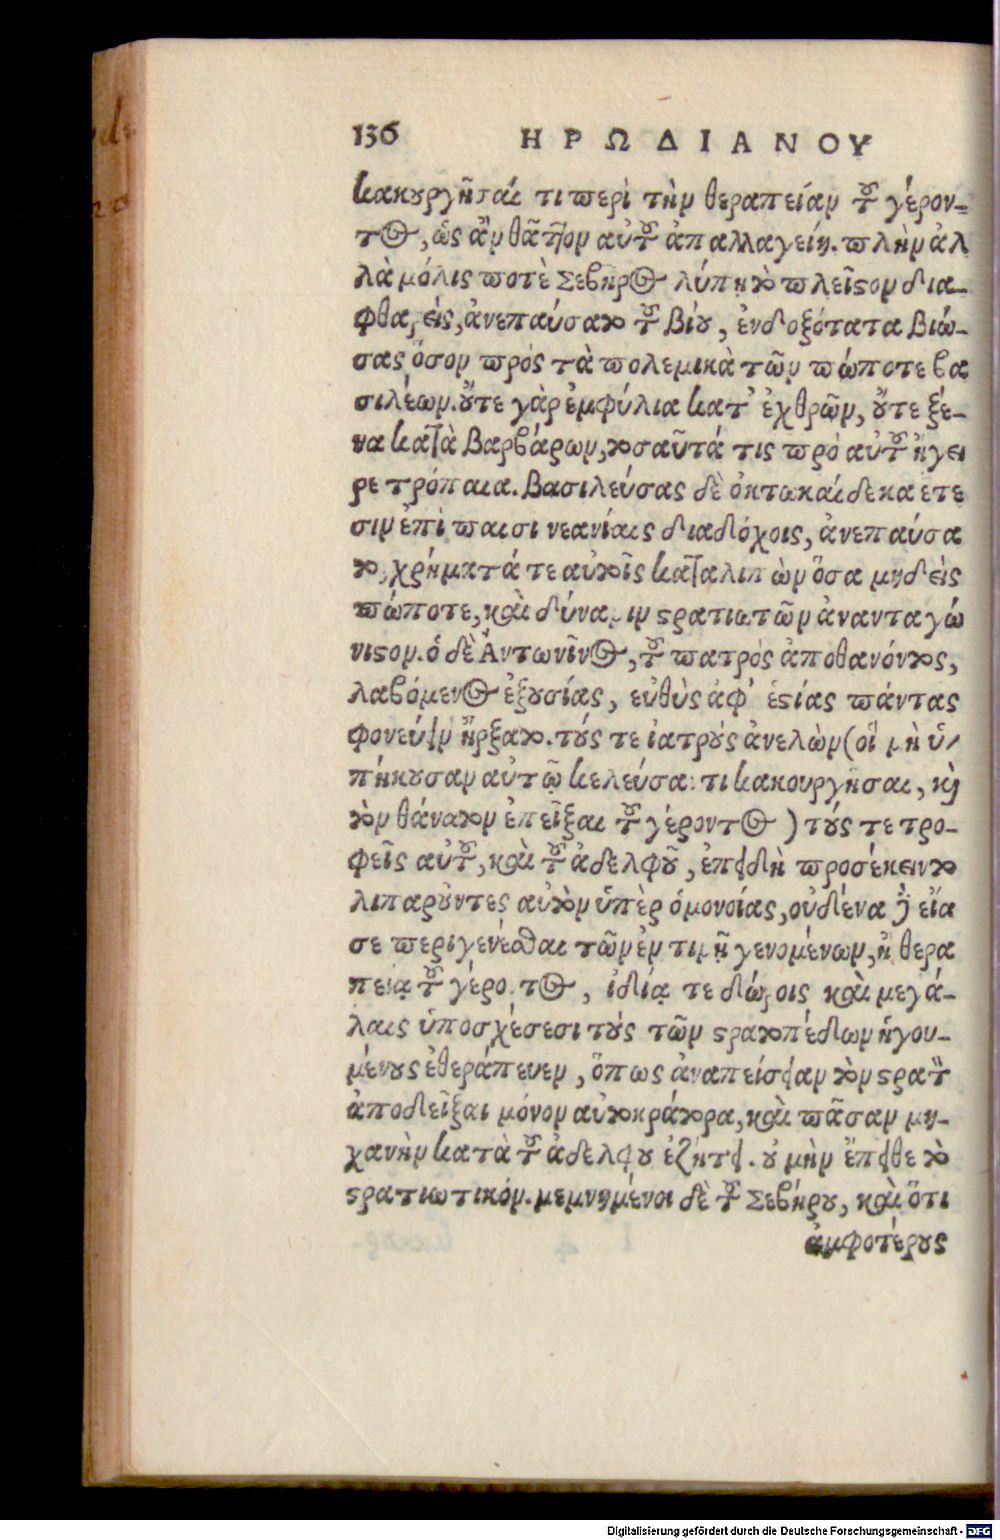 136 ΗΡΩΔΙΑΝΟΥ
κακουργῆσαί τι περὶ τὴν θεραπείαν τοῦ γέρον-
τος, ὡς ἂν θᾶττον αὐτοῦ ἀπαλλαγείη. πλὴν ἀλ
λὰ μόλις ποτὲ Σεβῆρος λύπῃ τὸ πλεῖστον δια-
φθαρεὶς, ἀνεπαύσατο τοῦ βίου, ἐνδοξότατα βιώ-
σας ὅσον πρὸς τὰ πολεμικὰ τῶν πώποτε βα
σιλέων. οὔτε γὰρ ἐμφύλια κατ' ἐχθρῶν, οὔτε ξέ-
να κατὰ βαρβάρων, τοσαῦτά τις πρὸ αὐτοῦ ἤγει
ρε τρόπαια. βασιλεύσας δὲ ὀκτωκαίδεκα ετε
σιν ἐπὶ παισι νεανίαις διαδόχοις, ἀνεπαύσα
το, χρήματά τε αὐτοῖς καταλιπὼν ὅσα μηδεὶς
πώποτε, καὶ δύναμιν στρατιωτῶν ἀνανταγώ
νιστον. ὁ δὲ Ἀντωνῖνος, τοῦ πατρὸς ἀποθανόντος,
λαβόμενος ἐξουσίας, εὐθὺς ἀφ' ἑστίας πάντας
φονεύειν ἤρξατο. τούς τε ἰατροὺς ἀνελὼν (οἳ μὴ ὑ-
πήκουσαν αὐτῷ κελεύσαντι κακουργῆσαι, καὶ
τὸν θάνατον ἐπεῖξαι τοῦ γέροντος) τούς τε τρο-
φεῖς αὐτοῦ, καὶ τοῦ ἀδελφοῦ, ἐπειδὴ προσέκειντο
λιπαροῦντες αὐτὸν ὑπὲρ ὁμονοίας, οὐδένα δὲ εἴα
σε περιγενέσθαι τῶν ἐν τιμῇ γενομένων, ἢ θερα
πείᾳ τοῦ γέροντος, ἰδίᾳ τε δώροις καὶ μεγά-
λαις ὑποσχέσεσι τοὺς τῶν στρατοπέδων ἡγου-
μένους ἐθεράπευεν, ὅπως ἀναπείσειαν τὸν στρατὸν
ἀποδεῖξαι μόνον αὐτοκράτορα, καὶ πᾶσαν μη-
χανὴν κατὰ τοῦ ἀδελφου ἐζήτει. οὐ μὴν ἔπειθε τὸ
στρατιωτικόν. μεμνημένοι δὲ τοῦ Σεβήρου, καὶ ὅτι
ἀμφοτέρους
Digitalisierung gefördert durch die Deutsche Forschungsgemeinschaft - DFG